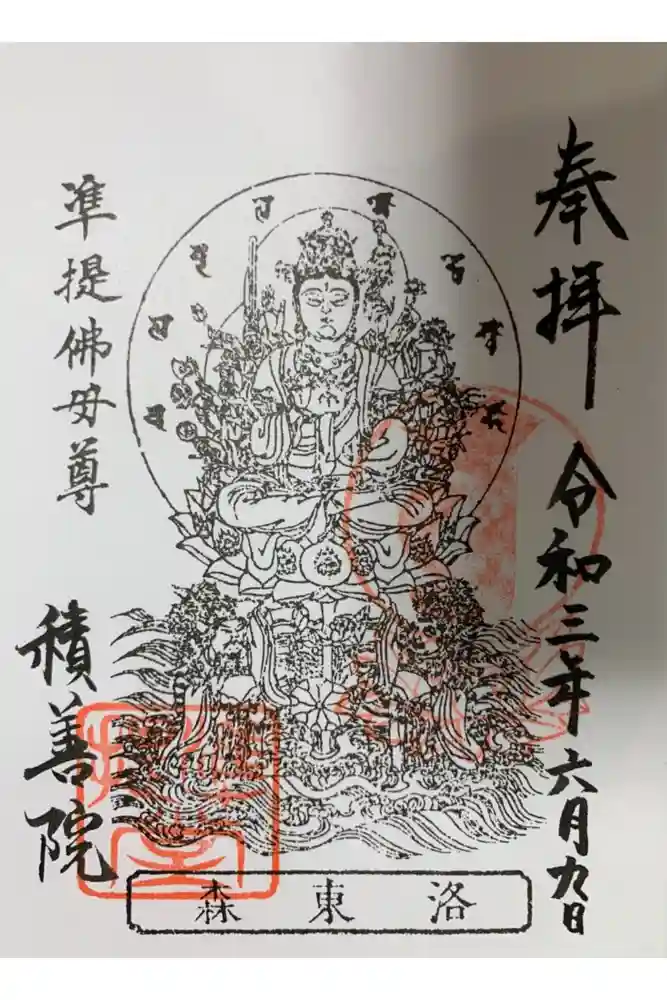 奉拝 令和三年六月九日
准提佛母尊
積善院
洛東森